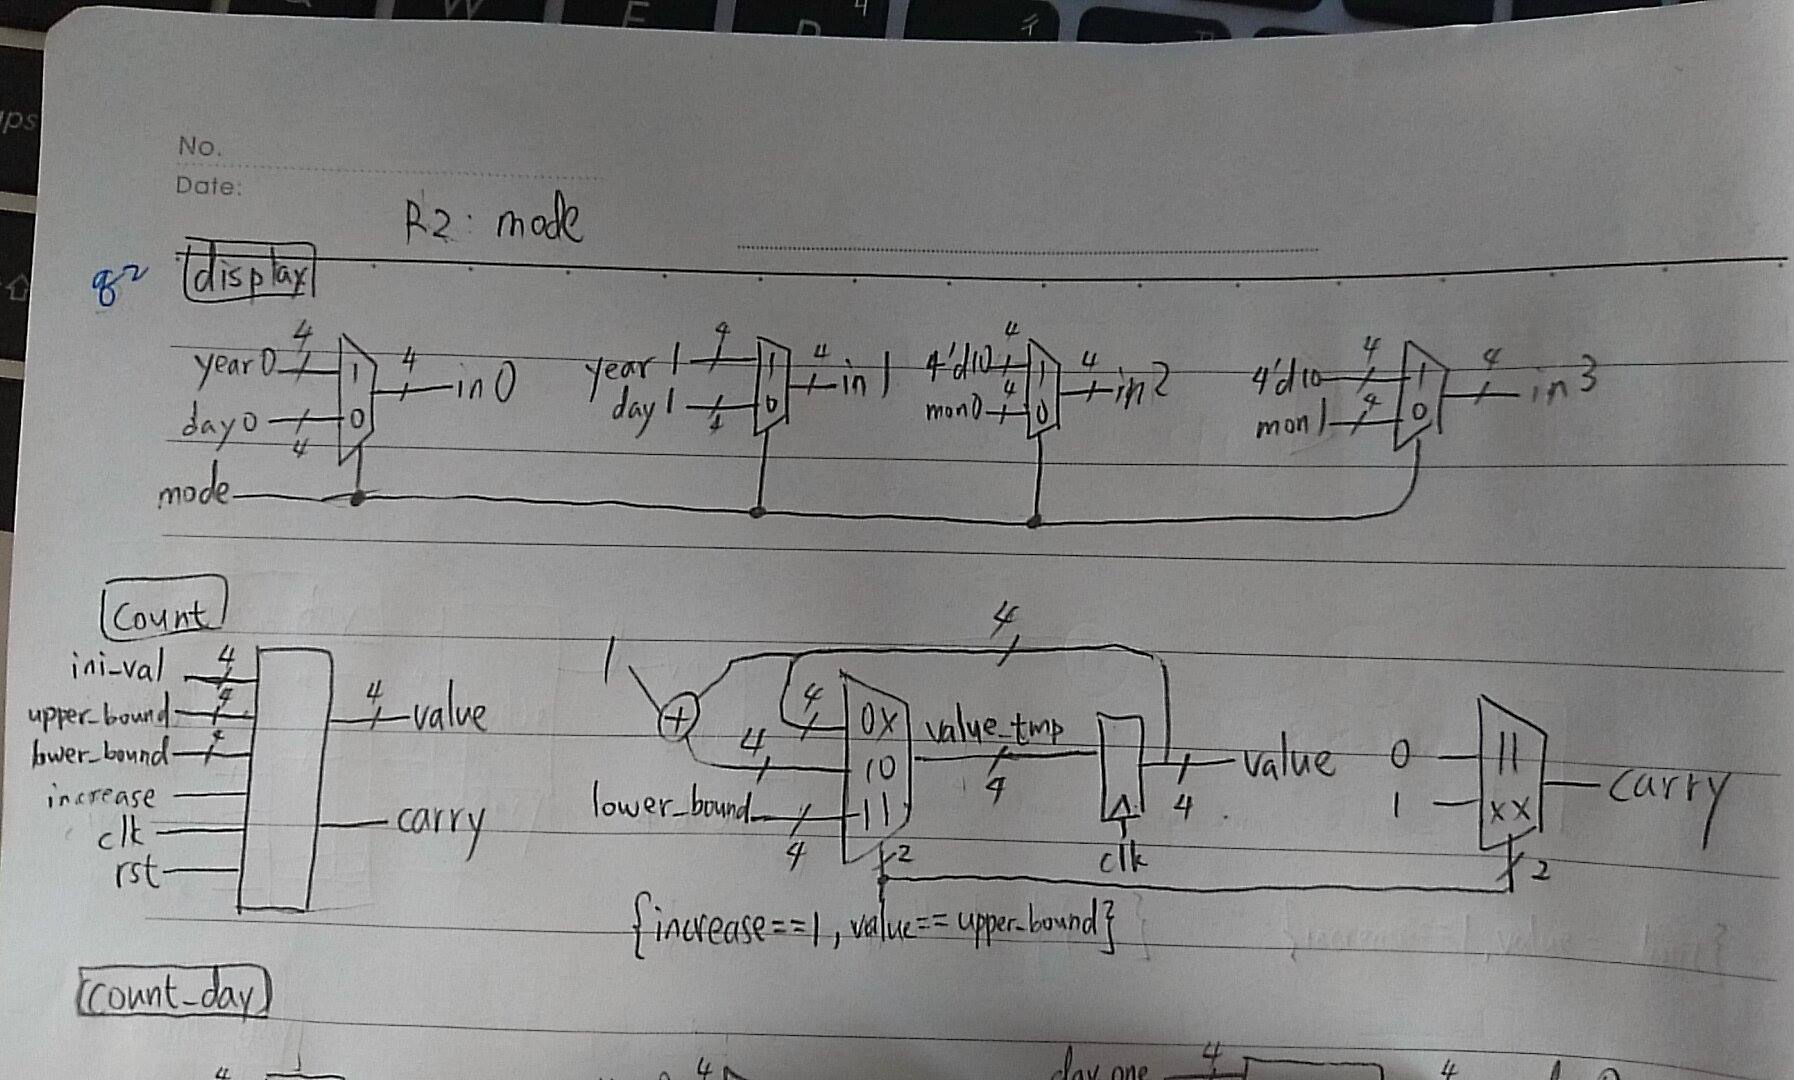 W E
ps
No.
Date:
R2: mode
display
year0 4 1 4 in0
day0 4 0
year1 4 1 4 in1
day1 4 0
4'd10 4 1 4 in2
mon0 4 0
4'd10 4 1 4 in3
mon1 4 0
mode
Count
ini-val 4
upper-bound 4 4 value
lower-bound 4
increase
clk carry
rst
1 + 4
4 0X value-tmp
4 10 4 4 value
lower-bound 4 11 clk
2
0 11 carry
1 XX
2
{increase==1, value==upper-bound}
count-day
4 4 day one 4 4